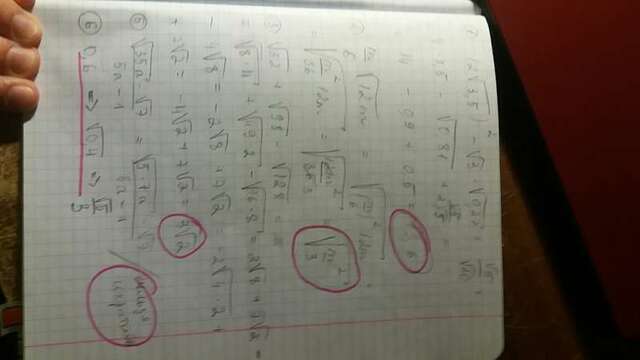 (2√3,5)² - √3 · √0,27 + √5/√20 =
= 4·3,5 - √0,81 + √5/2√5 =
= 14 - 0,9 + 0,5 = 13,6
m/6 √12m = √(m/6)² 12m =
= √m²/36 12m = √12m³/36 3 = √m³/3
③ √32 + √98 - √128 =
= √8·4 + √49·2 - √16·8 = 2√8 + 7√2 -
- 4√8 = -2√8 + 7√2 = -2√4·2 +
+ 7√2 = -4√2 + 7√2 = 3√2
⑤ √35a - √7 / 5a - 1 = √5·7a - √7 / 5a - 1
⑥ 0,6 => √0,4 => √5/3